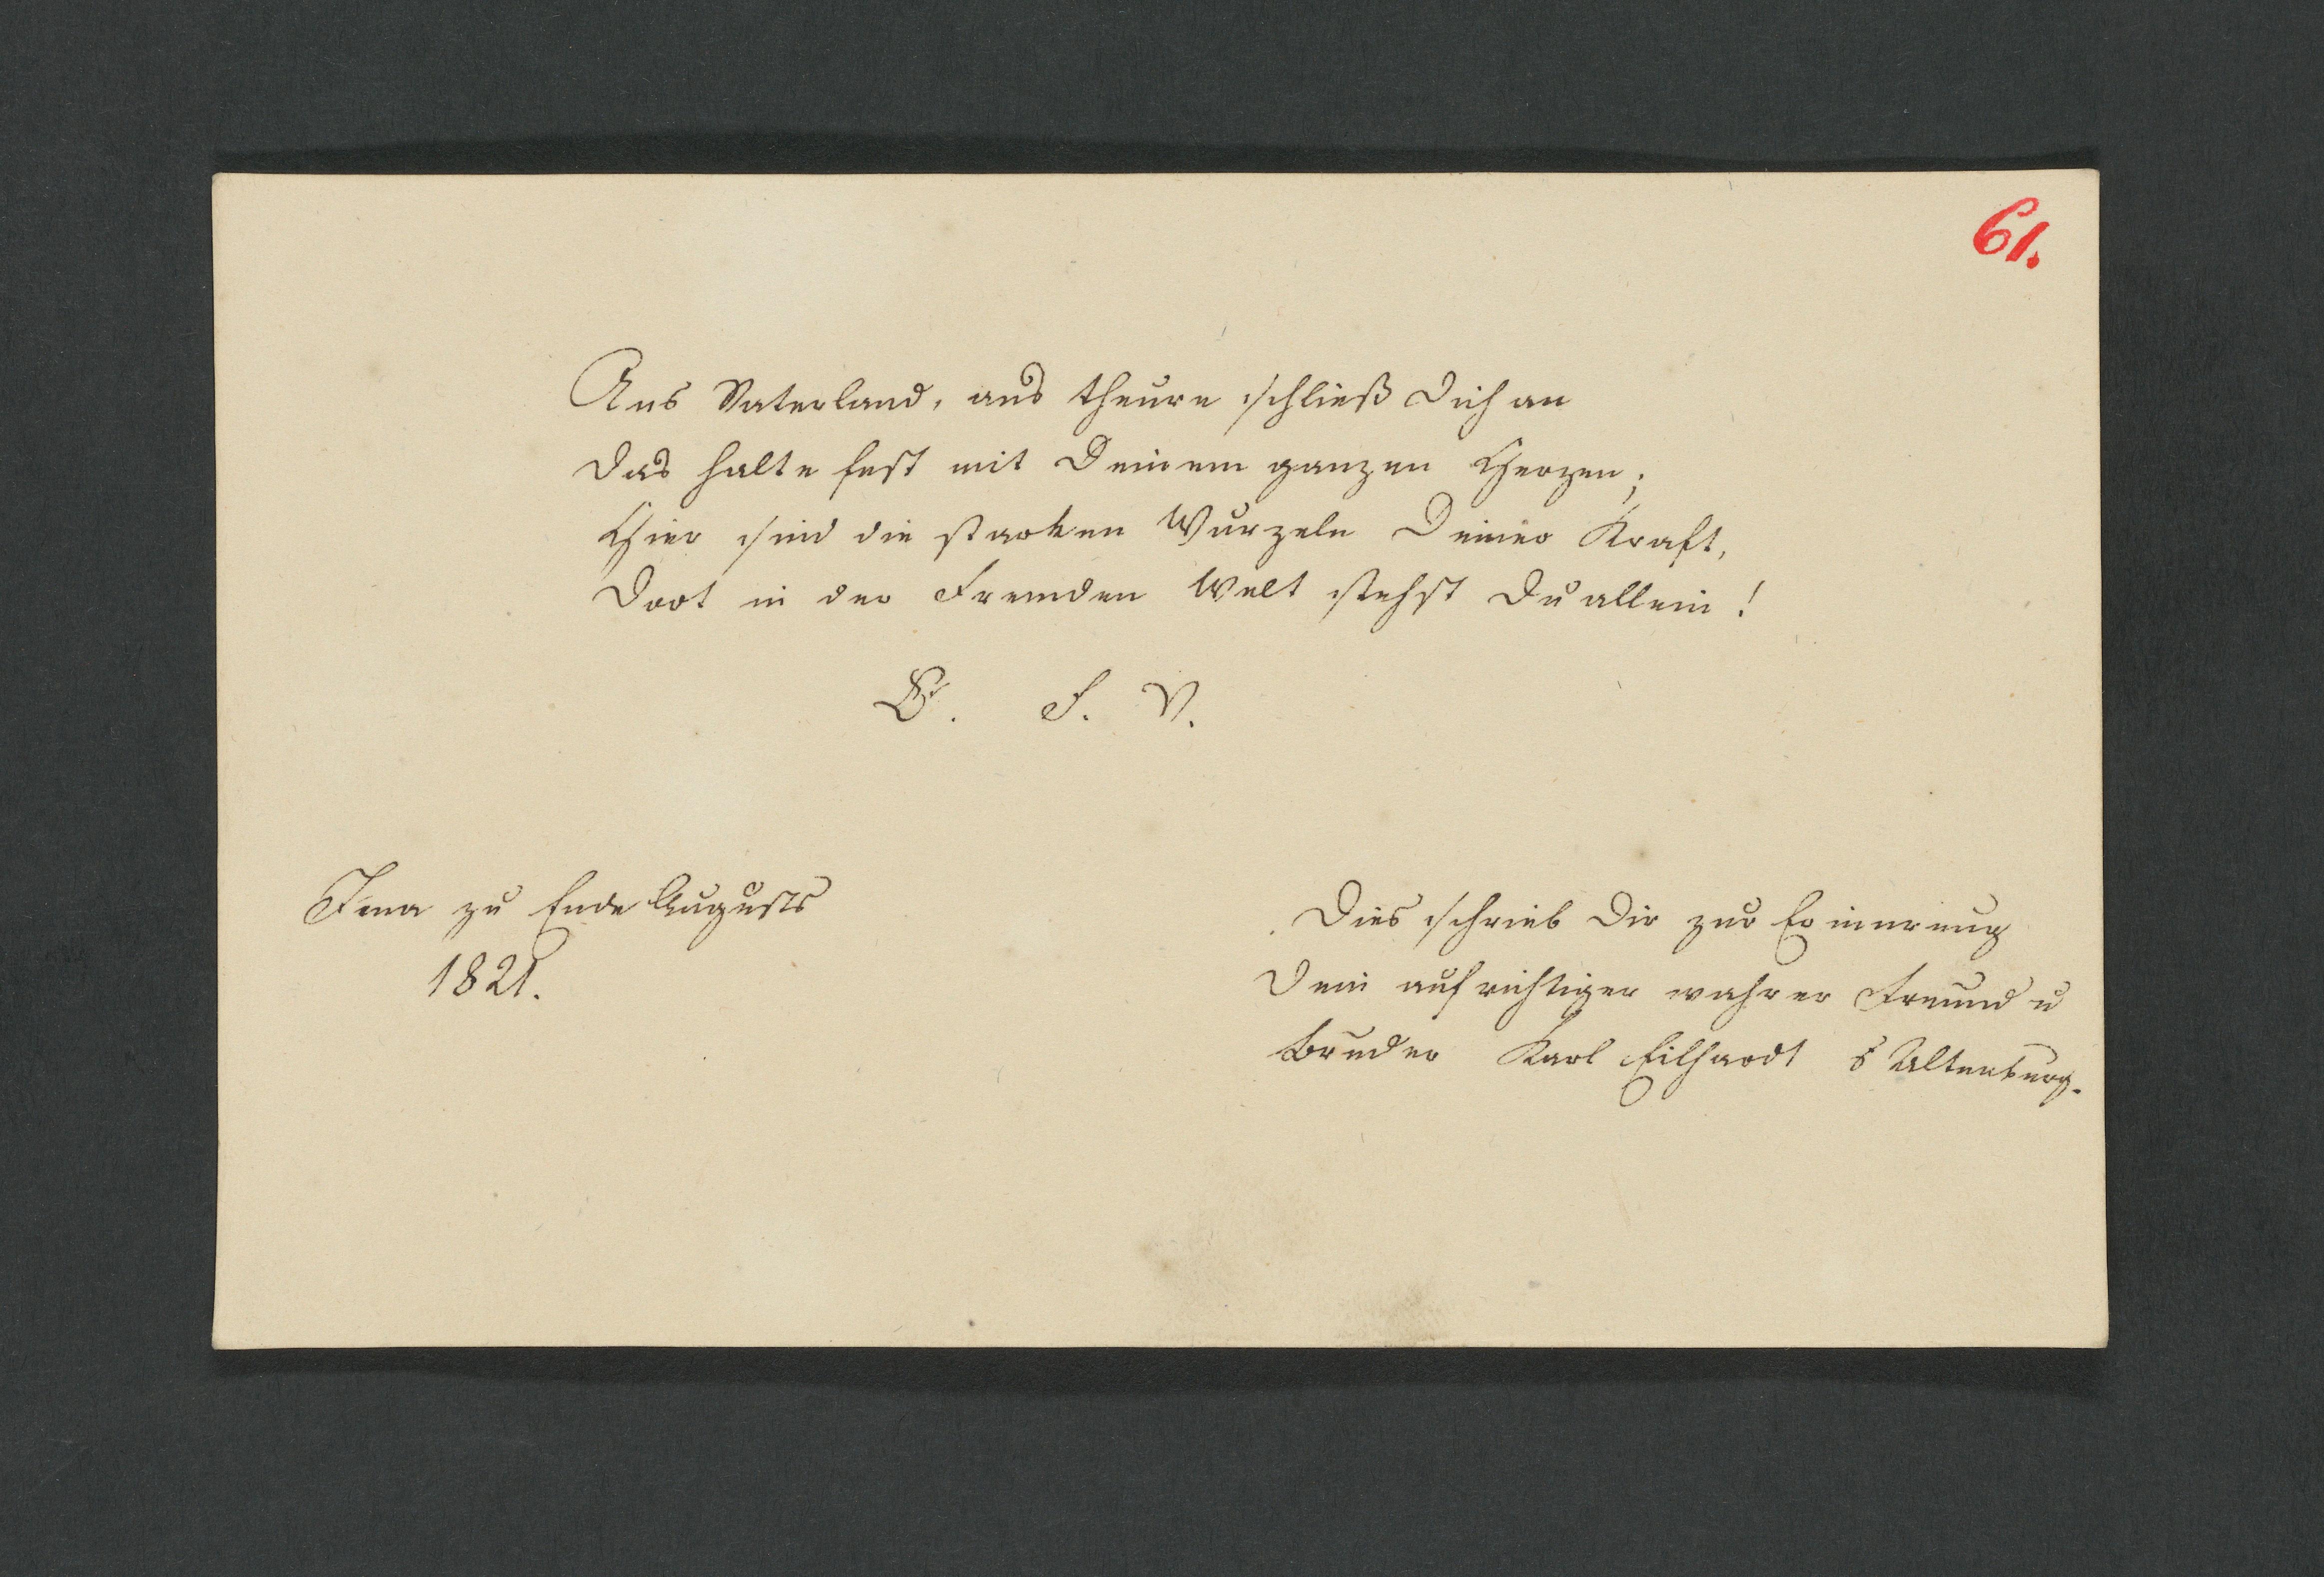 61.
Ans Vaterland, ans theure schließ Dich an
Das halte fest mit Deinem ganzen Herzen;
Hier sind die starken Wurzeln Deiner Kraft,
Dort in der Fremden Welt stehst Du allein!
E. F. V.
Jena zu Ende Augusts
1821.
Dies schrieb Dir zur Erinnerung
Dein aufrichtiger wahrer Freund u
Bruder Karl Eilhardt Altenburg.